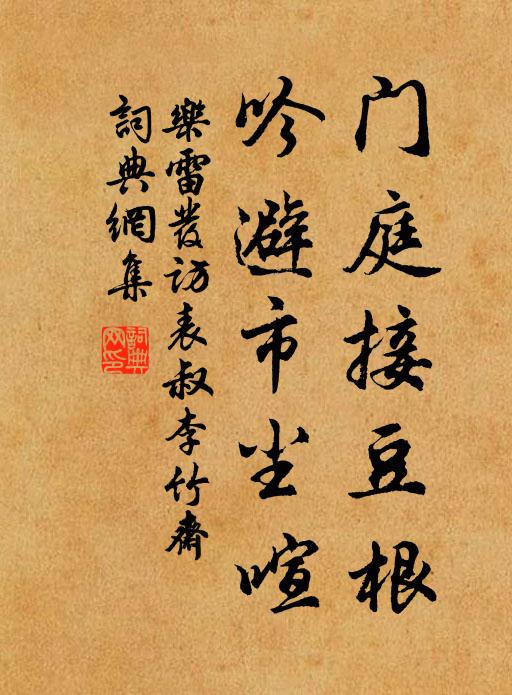 门庭接豆根
吟避市尘喧
樂雷發訪表叔李竹齋
詞典網集
詞典
网印